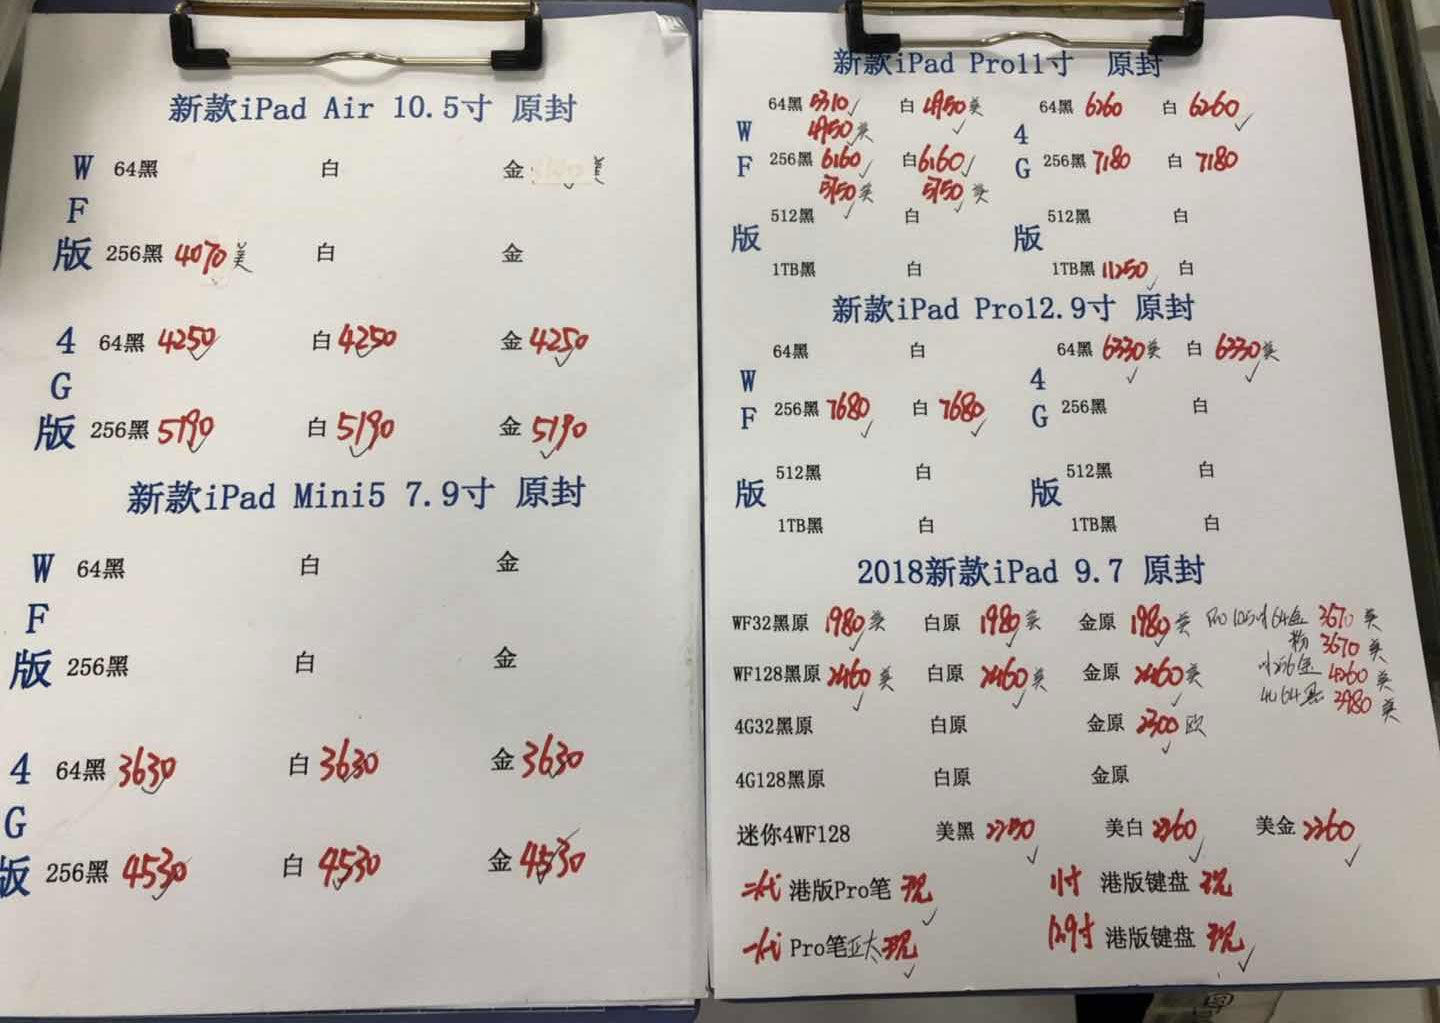 新款iPad Air 10.5寸 原封
WF版
64黑 白 金 美
256黑 4070美 白 金
4G版
64黑 4250 白 4250 金 4250
256黑 5190 白 5190 金 5190
新款iPad Mini5 7.9寸 原封
WF版
64黑 白 金
256黑 白 金
4G版
64黑 3630 白 3630 金 3630
256黑 4530 白 4530 金 4530
新款iPad Pro11寸 原封
WF版
64黑 5310 白 4950美
4950美
256黑 6160 白 6160
5750美 5750美
512黑 白
1TB黑 白
4G版
64黑 6260 白 6260
256黑 7180 白 7180
512黑 白
1TB黑 11250 白
新款iPad Pro12.9寸 原封
WF版
64黑 白
256黑 7680 白 7680
512黑 白
1TB黑 白
4G版
64黑 6330美 白 6330美
256黑 白
512黑 白
1TB黑 白
2018新款iPad 9.7 原封
WF32黑原 1980美 白原 1980美 金原 1980美
WF128黑原 2460美 白原 2460美 金原 2460美
4G32黑原 白原 金原 2300欧
4G128黑原 白原 金原
Pro 10.5寸64金 3670美
粉 3670美
256金 4260美
4G64黑 3980美
迷你4WF128 美黑 2250 美白 2260 美金 2260
二代 港版Pro笔 现 11寸 港版键盘 现
一代 Pro笔亚太现 12.9寸 港版键盘 现